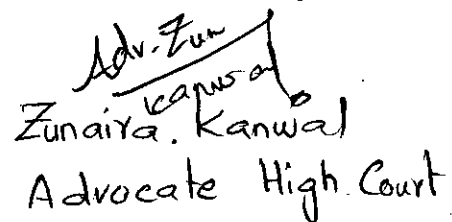 Adv. Zun
Kanwal
Zunaira. Kanwal
Advocate High Court